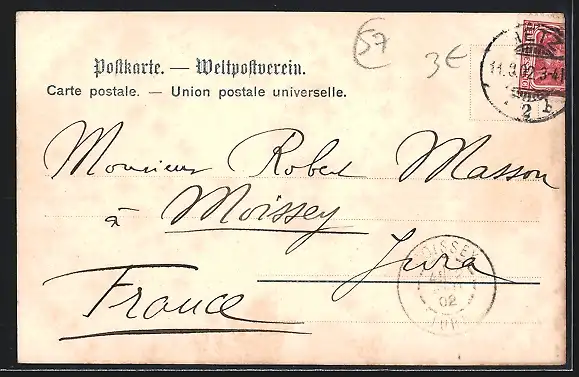 57
3€
Postkarte. — Weltpostverein.
Carte postale. — Union postale universelle.
11.3.02. 3-4
2
Monsieur Robert Masson
à Moissey
Jura
France
MOISSEY
02
JURA